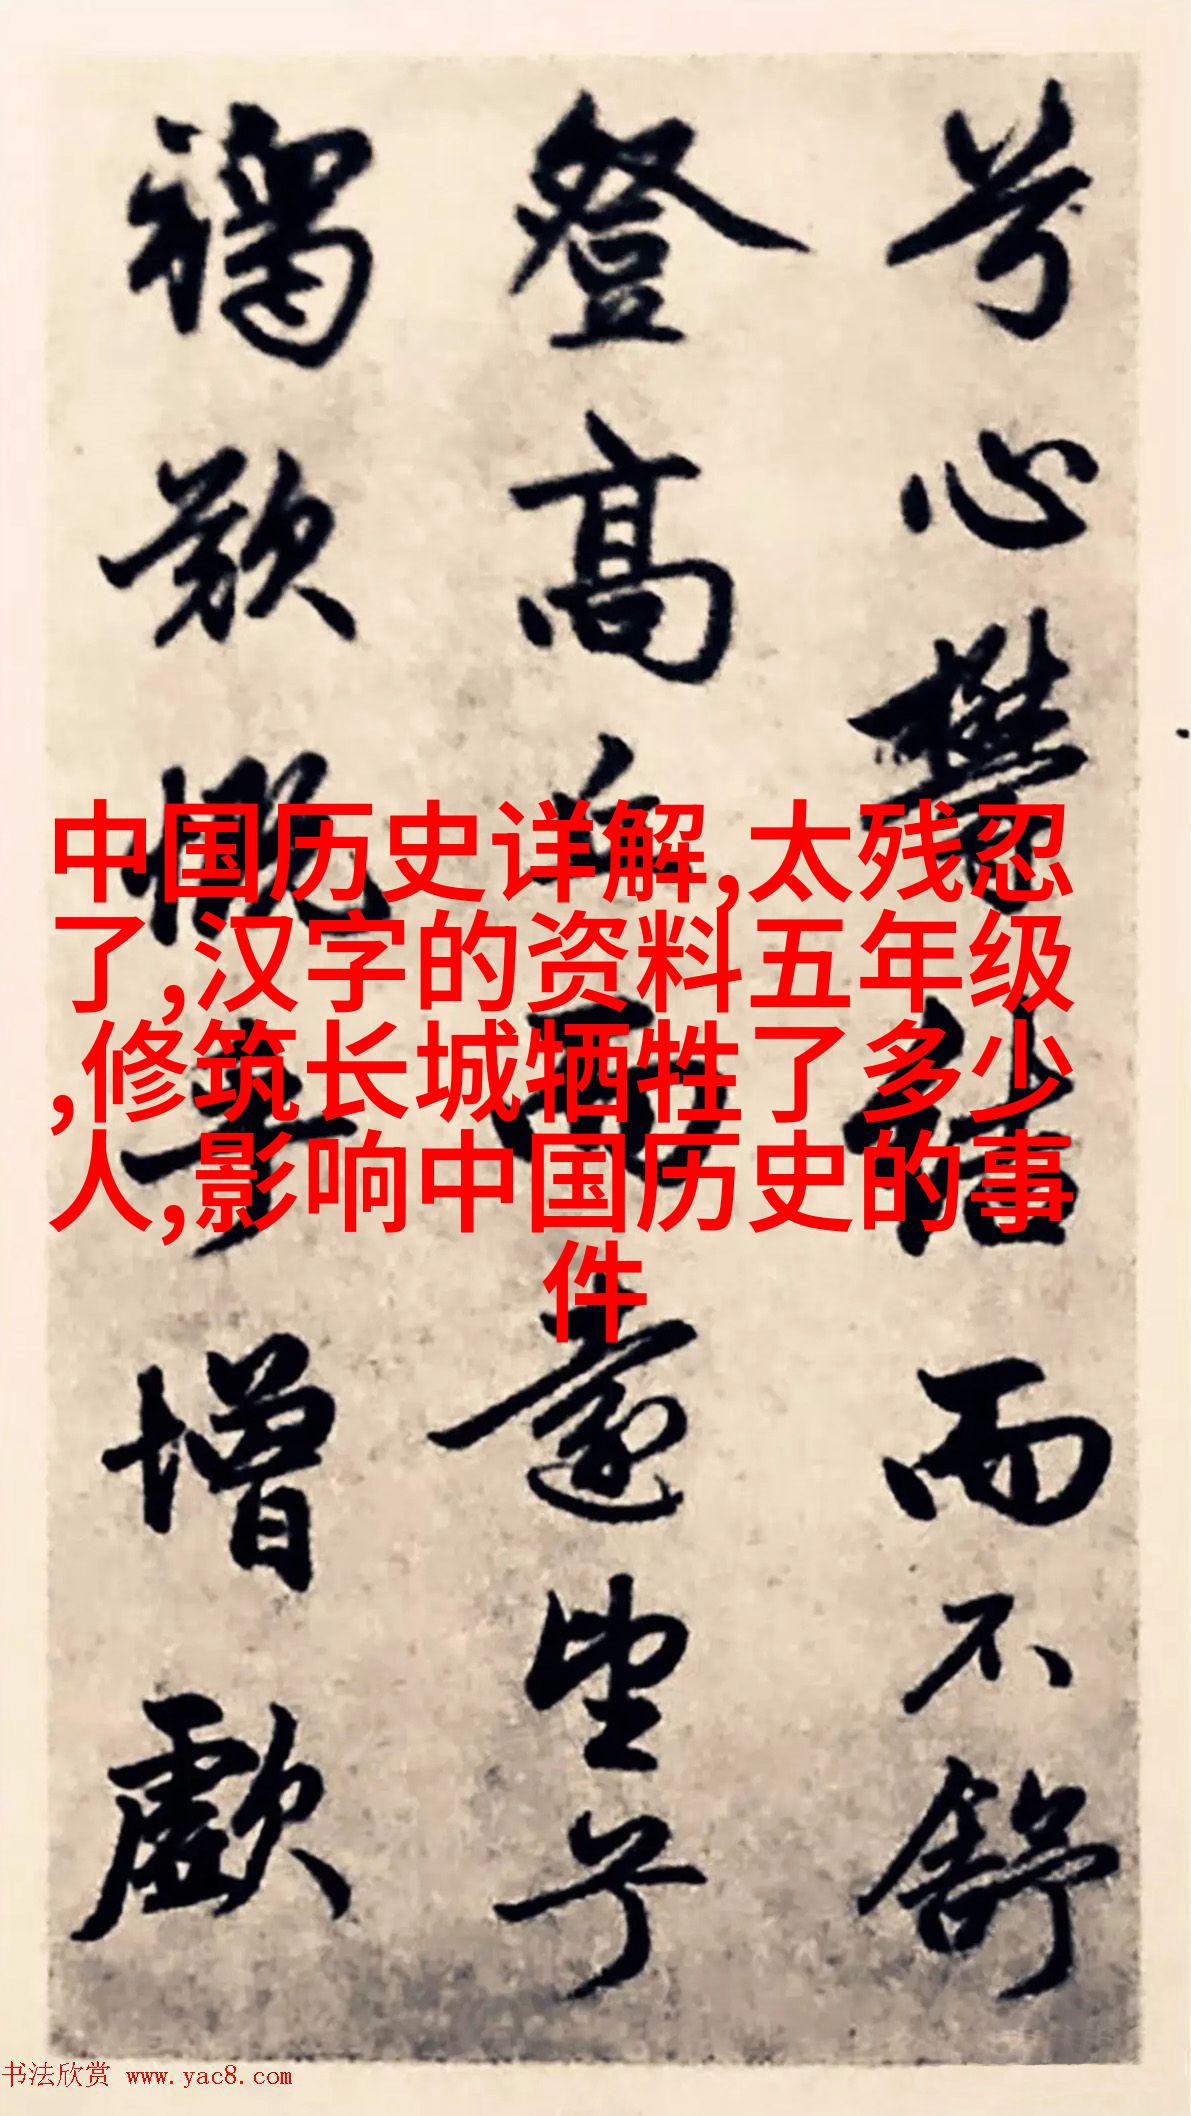 兮心鬱結而不舒
登高而遠望兮
增歔
中国历史详解,太残忍
了,汉字的资料五年级
,修筑长城牺牲了多少
人,影响中国历史的事
件
书法欣赏 www.yac8.com